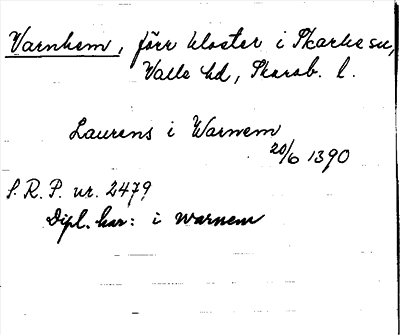 Varnhem, förr kloster i Skarke sn,
Valle hd, Skarab. l.
Laurens i Warnem
20/6 1390
S. R. P. nr. 2479
Dipl. har: i warnem